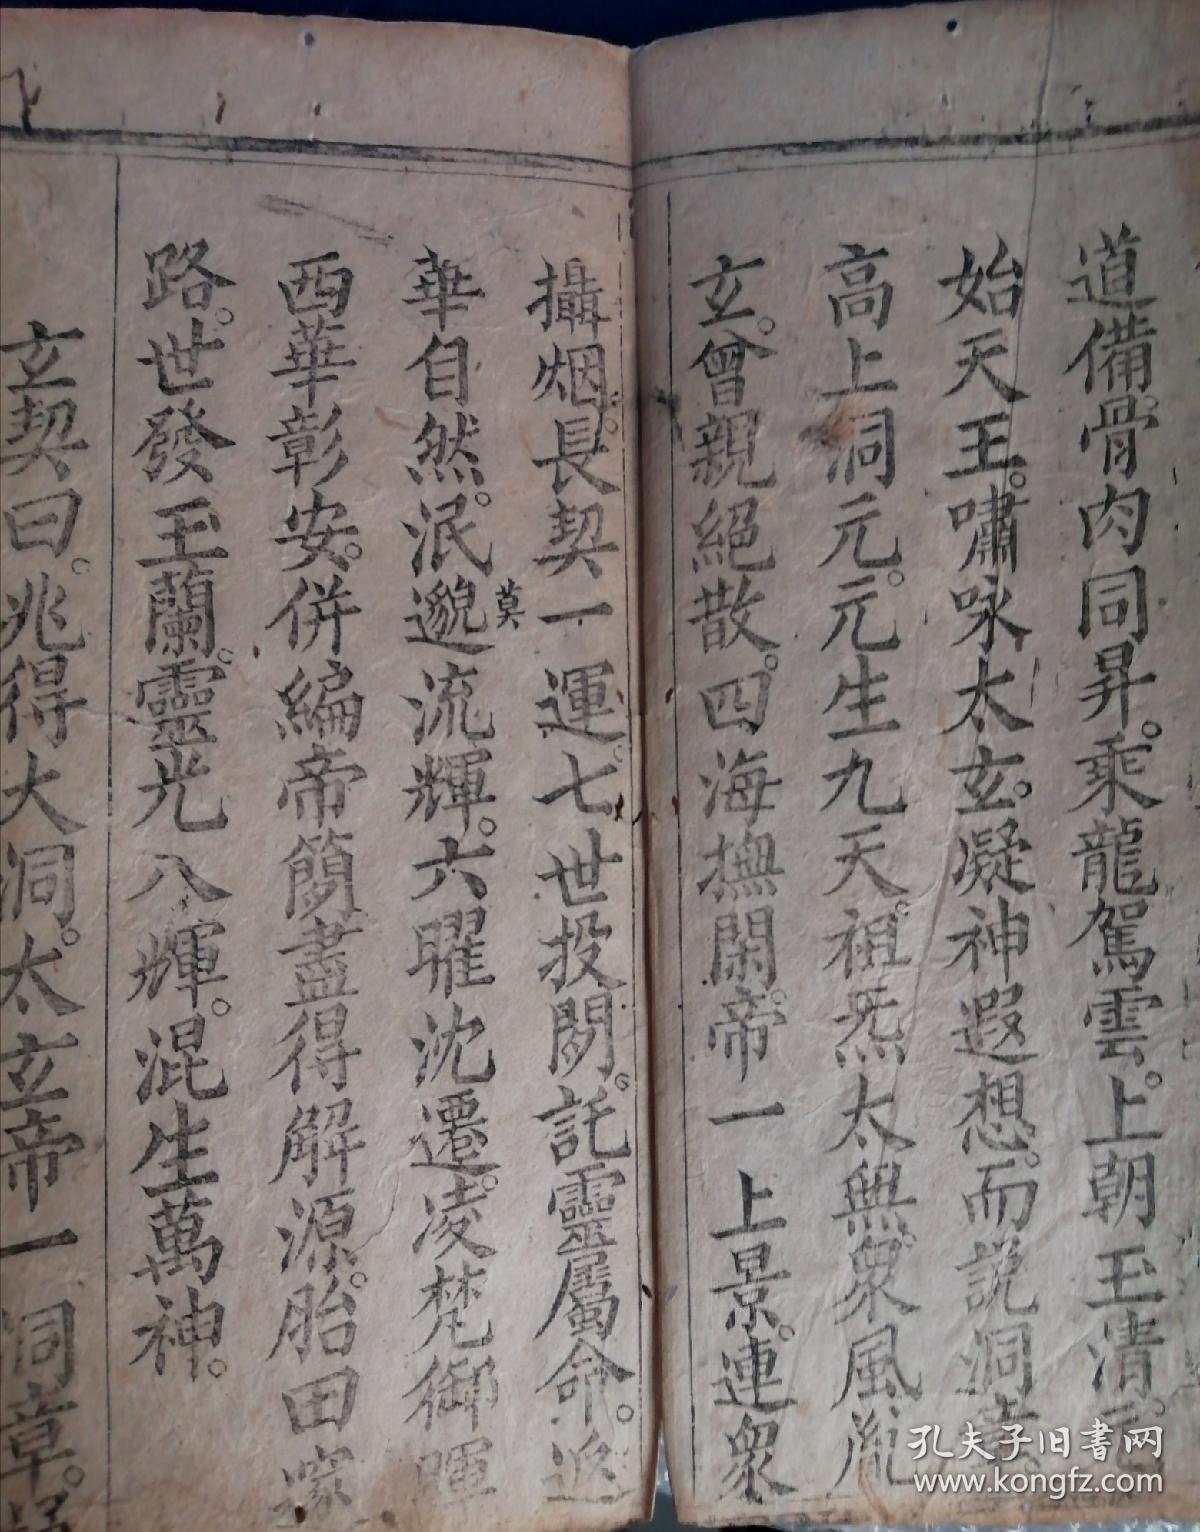 道備。骨肉同昇。乘龍駕雲。上朝玉清。元
始天王。嘯咏太玄。凝神遐想。而説洞章。
高上洞元。元生九天。祖炁太無。衆風胤
玄。曾親絕散。四海撫閑。帝一上景。連衆
攝烟。長契一運。七世投閞。託靈屬命。返
華自然。泯邈莫流輝。六曜沈遷。凌梵御暉
西華彰安。併編帝簡盡得解源。胎田寥
路。世發玉蘭。靈光八輝。混生萬神。
玄契曰。兆得大洞。太玄帝一洞章。
孔夫子旧書网
www.kongfz.com